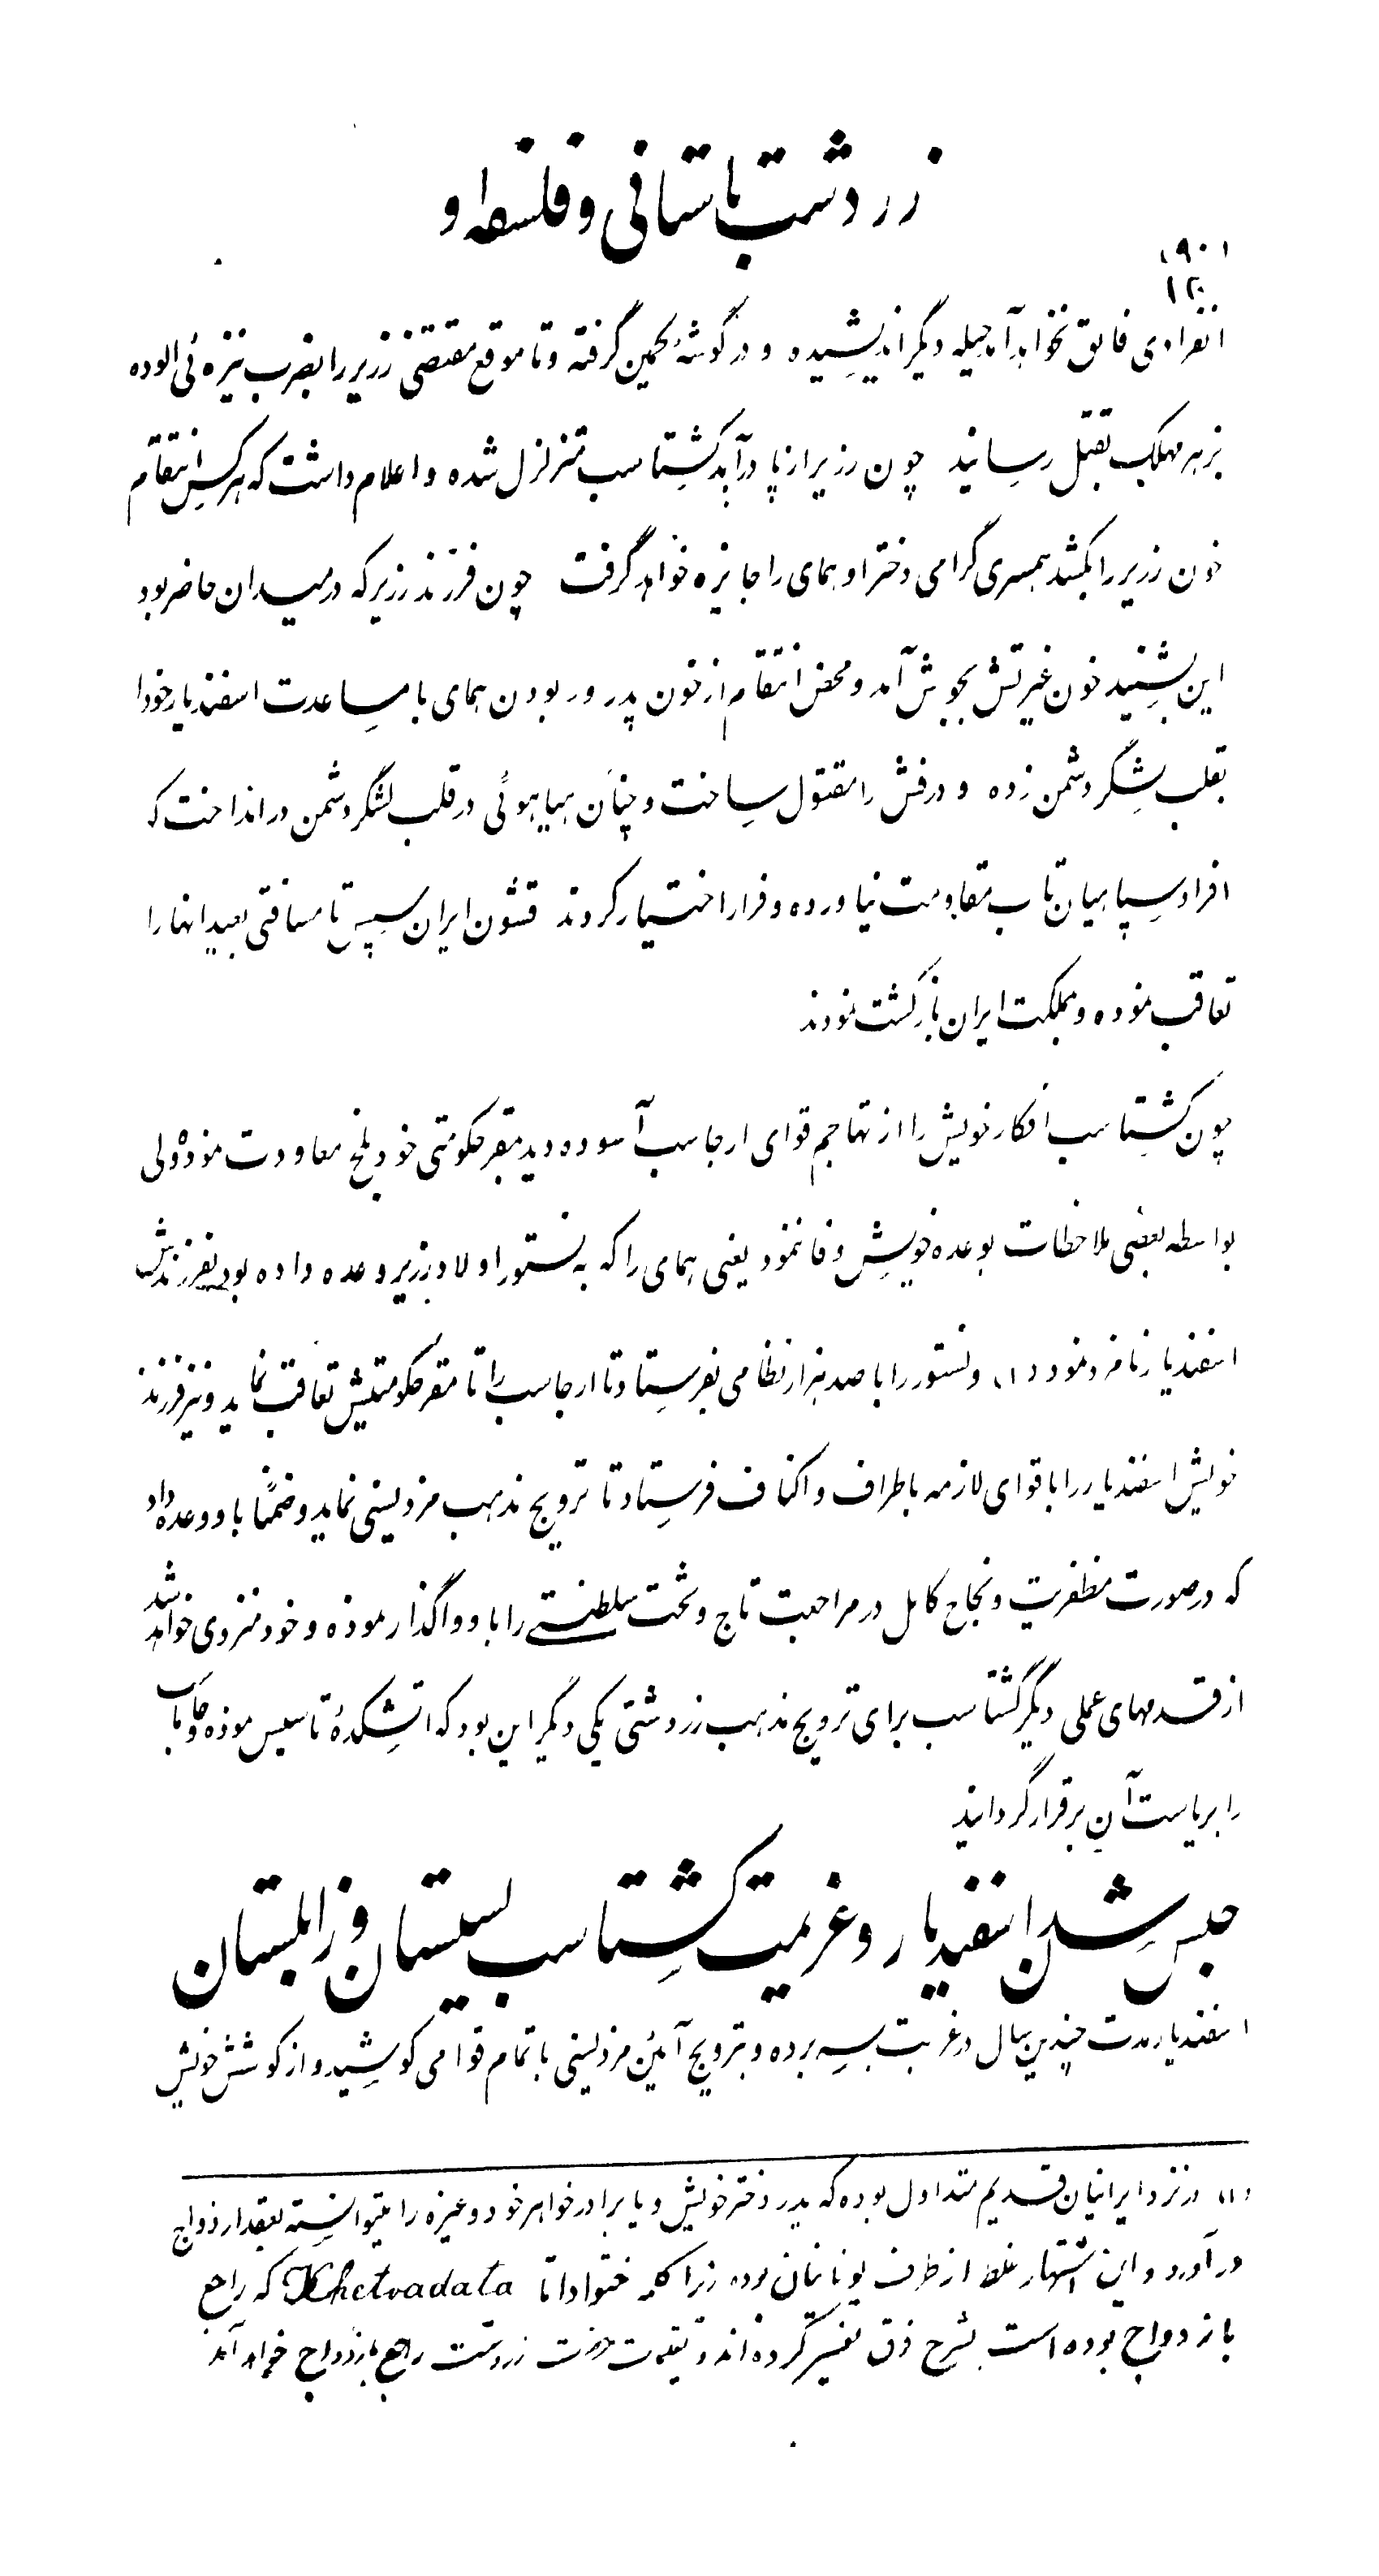 زردشت باستانی و فلسفه او
۱۹۰۱
۱۲
انفرادی فایق نخواهد آمد حیله دیگر اندیشیده و در گوشهٔ کمین گرفته و تا موقع مقتضی زریر را بضرب نیزه ئی الوده
بزهر مهلک بقتل رسانید چون زریر از پا درآمد گشتاسب متزلزل شده و اعلام داشت که هر کس انتقام
خون زریر را بکشد همسری گرامی دختر او همای را جایزه خواهد گرفت چون فرزند زریر که در میدان حاضر بود
این بشنید خون غیرتش بجوش آمد و محض انتقام از خون پدر و ربودن همای با مساعدت اسفندیار خود را
بقلب لشگر دشمن زده و درفش را مقتول ساخت و چنان هیاهوئی در قلب لشگر دشمن در انداخت که
افراد سپاهیان تاب مقاومت نیاورده و فرار اختیار کردند قشون ایران سپس تا مسافتی بعید انها را
تعاقب نموده و بمملکت ایران بازگشت نمودند
چون گشتاسب افکار خویش را از تهاجم قوای ارجاسب آسوده دید بمقر حکومتی خود بلخ معاودت نموده ولی
بواسطه بعضی ملاحظات بوعده خویش وفا ننمود یعنی همای را که به نستور اولاد زریر وعده داده بود بفرزندش
اسفندیار نامزد نمود (۱) و نستور را با صد هزار نظامی بفرستاد تا ارجاسب را تا مقر حکومتیش تعاقب نماید و نیز فرزند
خویش اسفندیار را با قوای لازمه باطراف و اکناف فرستاد تا ترویج مذهب مزدیسنی نماید و ضمناً باو وعده داد
که در صورت مظفریت و نجاح کامل در مراجعت تاج و تخت سلطنتی را باو واگذار نموده و خود منزوی خواهد شد
از قدمهای عملی دیگر گشتاسب برای ترویج مذهب زردشتی یکی دیگر این بود که اتشکدهٔ تاسیس نموده و جاماسب
را بریاست آن برقرار گردانید
حبس شدن اسفندیار و عزیمت گشتاسب بسیستان و زابلستان
اسفندیار مدت چندین سال در غربت بسر برده و بترویج آئین مزدیسنی با تمام قوا می کوشید و از کوشش خویش
(۱) در نزد ایرانیان قدیم متداول بوده که پدر دختر خویش و یا برادر خواهر خود و غیره را میتوانسته بعقد ازدواج
در آورد و این اشتهار غلط از طرف یونانیان بوده زیرا کلمه ختوادانا Khetvadata که راجع
بازدواج بوده است بشرح فوق تفسیر کرده‌اند و تعلیمات حضرت زردشت راجع بازدواج خواهد آمد